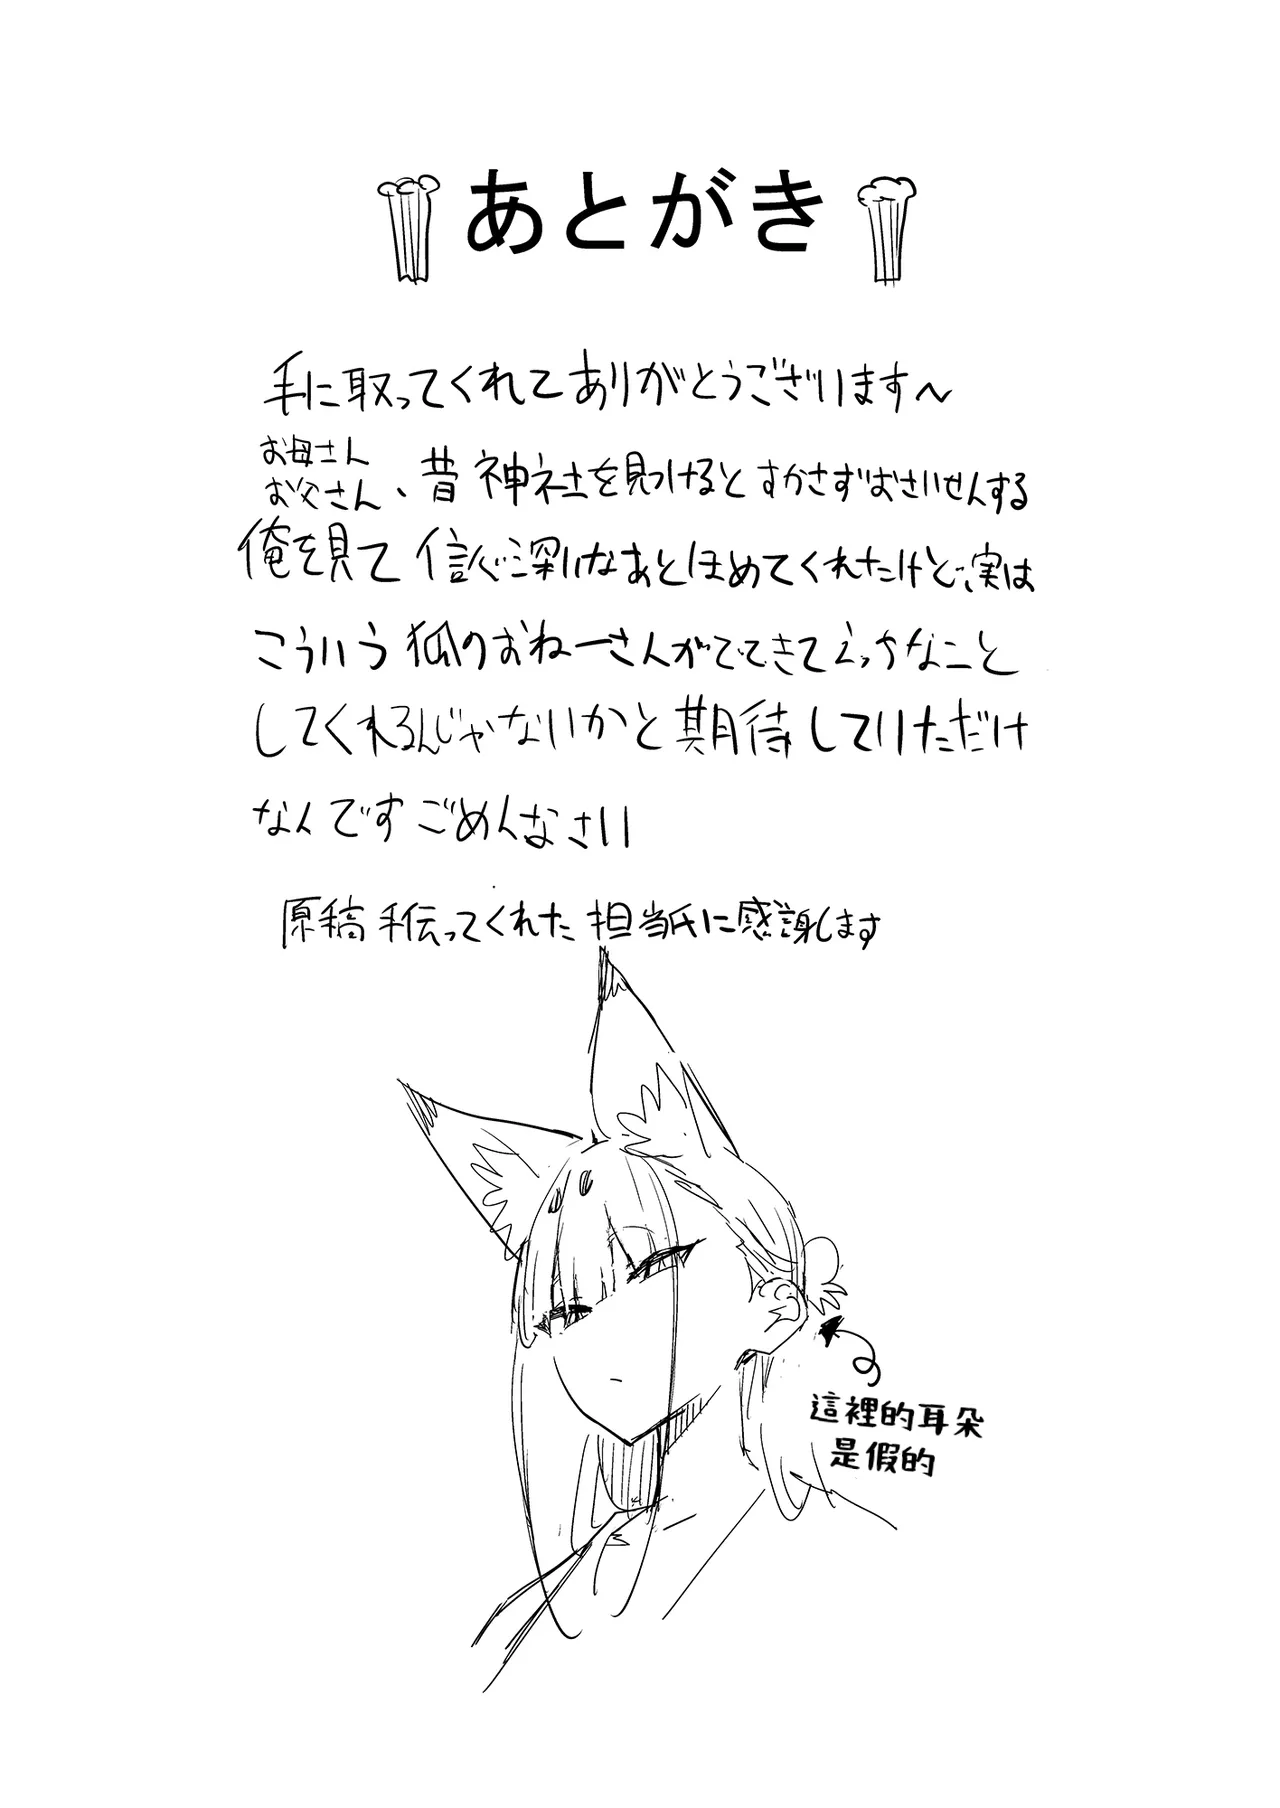 あとがき
手に取ってくれてありがとうございます～
お母さん
お父さん、昔神社を見つけるとすかさずおさいせんする
俺を見て信心深いなあとほめてくれたけど、実は
こういう狐のおねーさんがでてきてえっちなこと
してくれるんじゃないかと期待していただけ
なんですごめんなさい
原稿手伝ってくれた担当氏に感謝します
這裡的耳朵
是假的